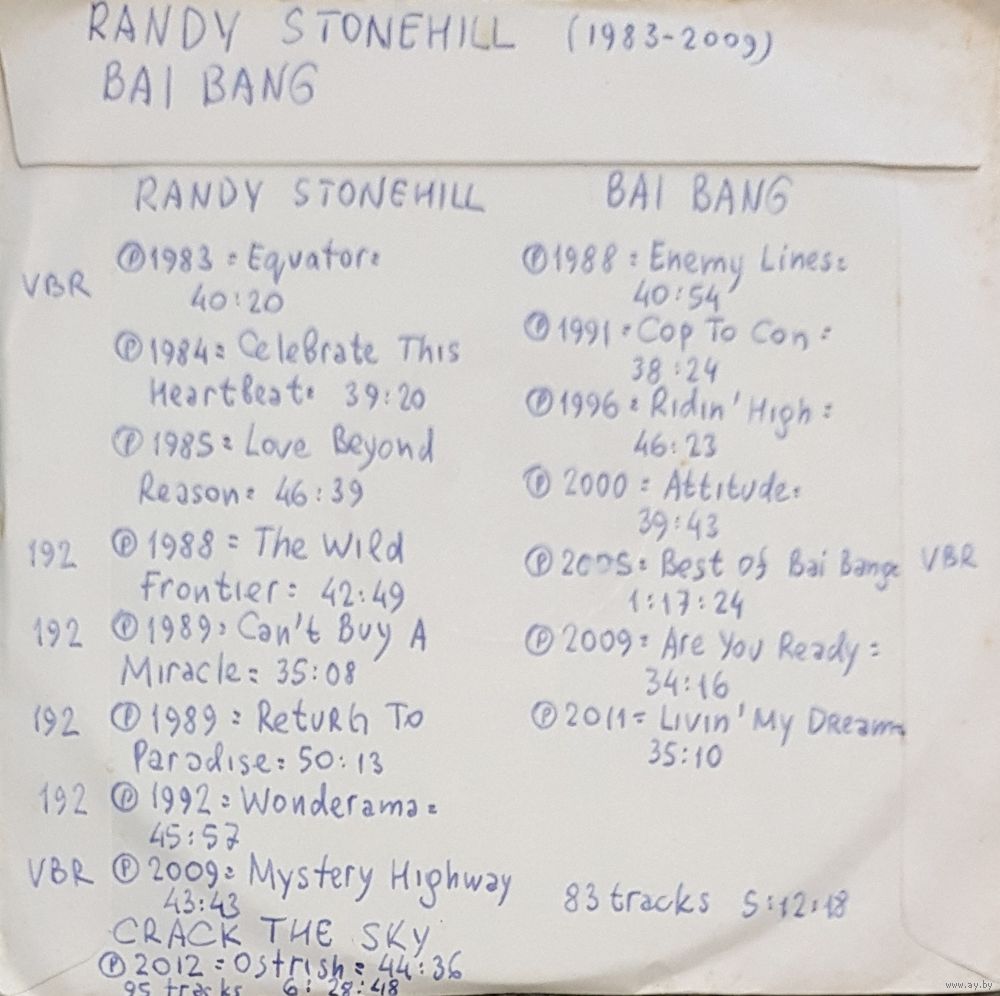 RANDY STONEHILL (1983-2009)
BAI BANG
RANDY STONEHILL
VBR
Ⓟ1983 = Equator=
40:20
Ⓟ1984= Celebrate This
Heartbeat= 39:20
Ⓟ1985= Love Beyond
Reason= 46:39
192 Ⓟ1988= The Wild
Frontier= 42:49
192 Ⓟ1989= Can't Buy A
Miracle= 35:08
192 Ⓟ1989= Return To
Paradise= 50:13
192 Ⓟ1992= Wonderama=
45:57
VBR Ⓟ2009= Mystery Highway
43:43
CRACK THE SKY
Ⓟ2012= Ostrish= 44:36
95 tracks 6:28:48
BAI BANG
Ⓟ1988= Enemy Lines=
40:54
Ⓟ1991= Cop To Con=
38:24
Ⓟ1996= Ridin' High=
46:23
Ⓟ2000= Attitude=
39:43
Ⓟ2005= Best of Bai Bang= VBR
1:17:24
Ⓟ2009= Are You Ready=
34:16
Ⓟ2011= Livin' My Dream
35:10
83 tracks 5:12:18
www.ay.by